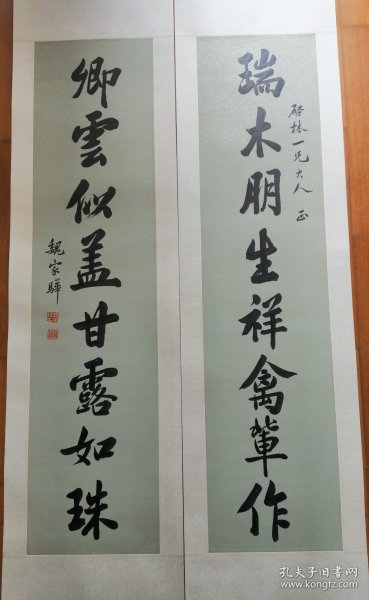 瑞木朋生祥禽軰作
啓林一兄大人 正
卿雲似盖甘露如珠
魏家驊
孔夫子旧书网
www.kongfz.com